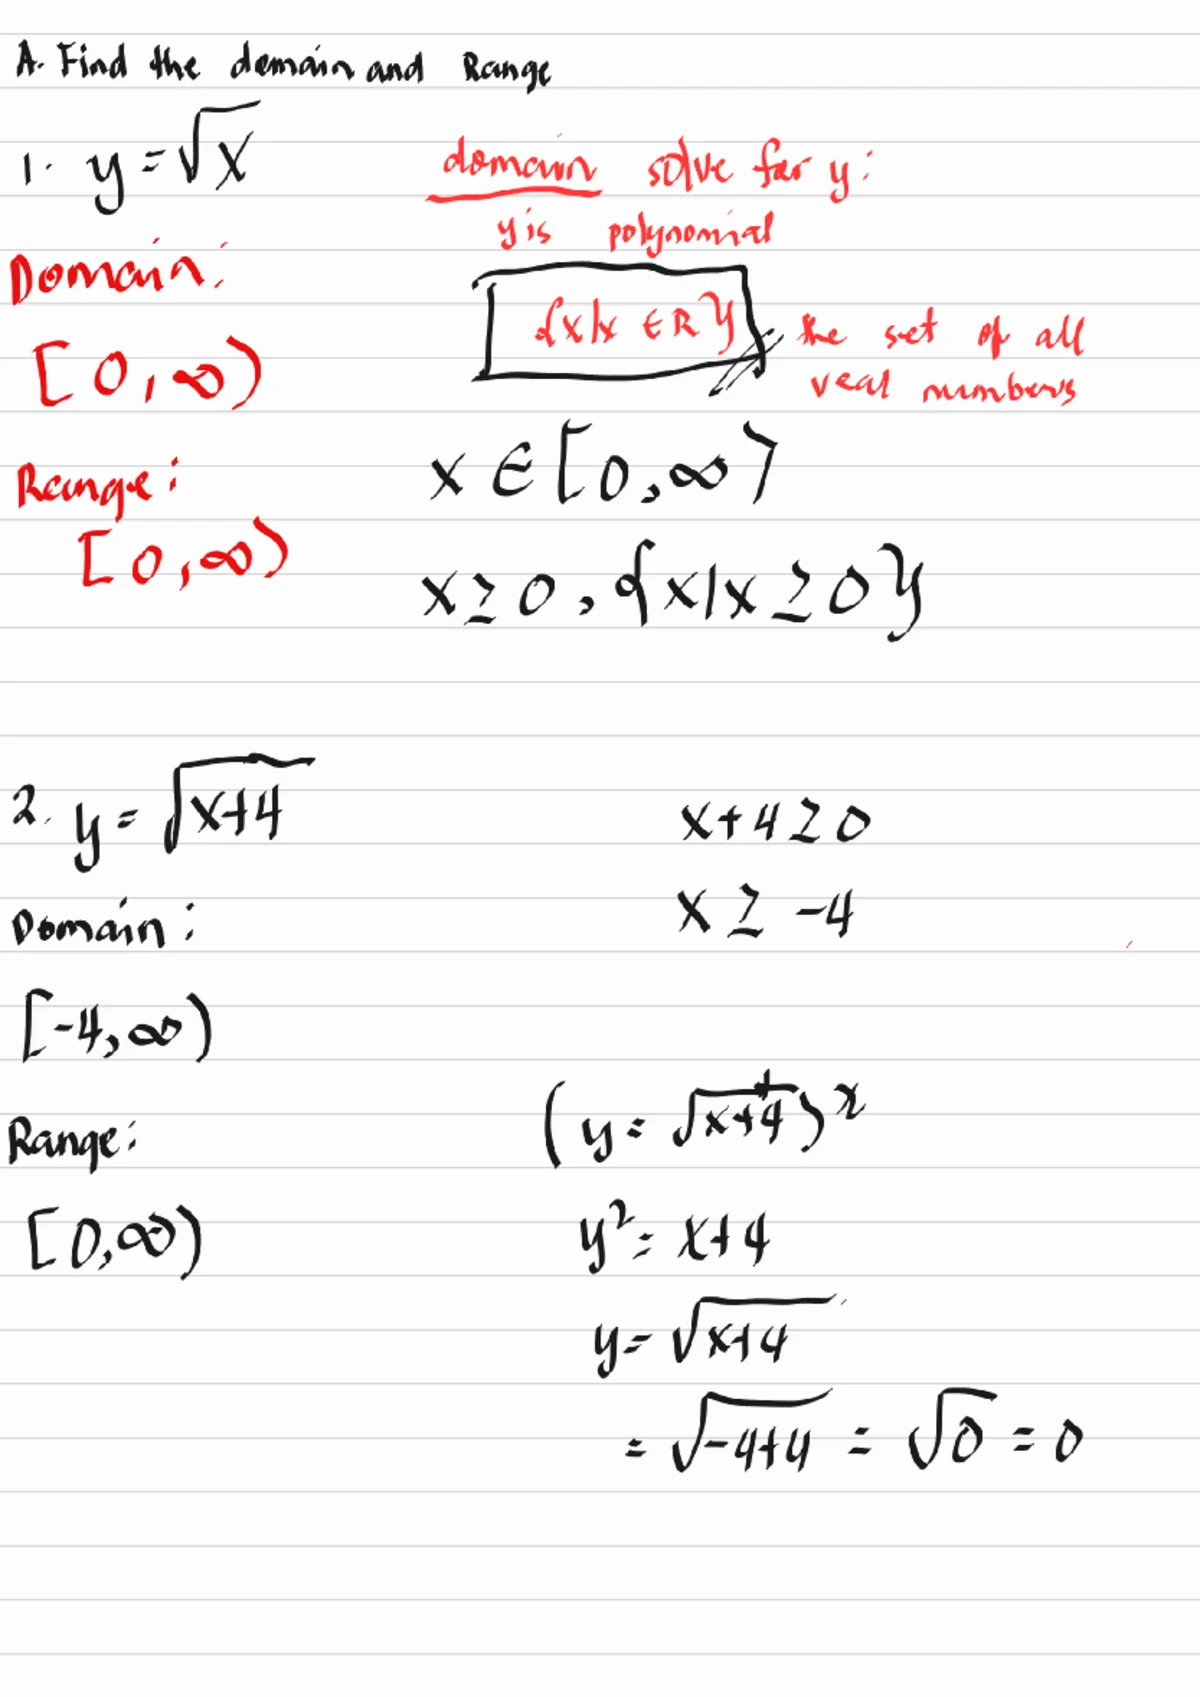 A. Find the domain and Range
1. y = √x
domain solve for y:
y is polynomial
{x|x ∈ R}
the set of all
real numbers
Domain:
[0, ∞)
x ∈ [0, ∞)
Range:
[0, ∞)
x ≥ 0, {x|x ≥ 0}
2. y = √x+4
x+4 ≥ 0
Domain:
x ≥ -4
[-4, ∞)
Range:
(y = √x+4)²
[0, ∞)
y² = x+4
y = √x+4
= √-4+4 = √0 = 0